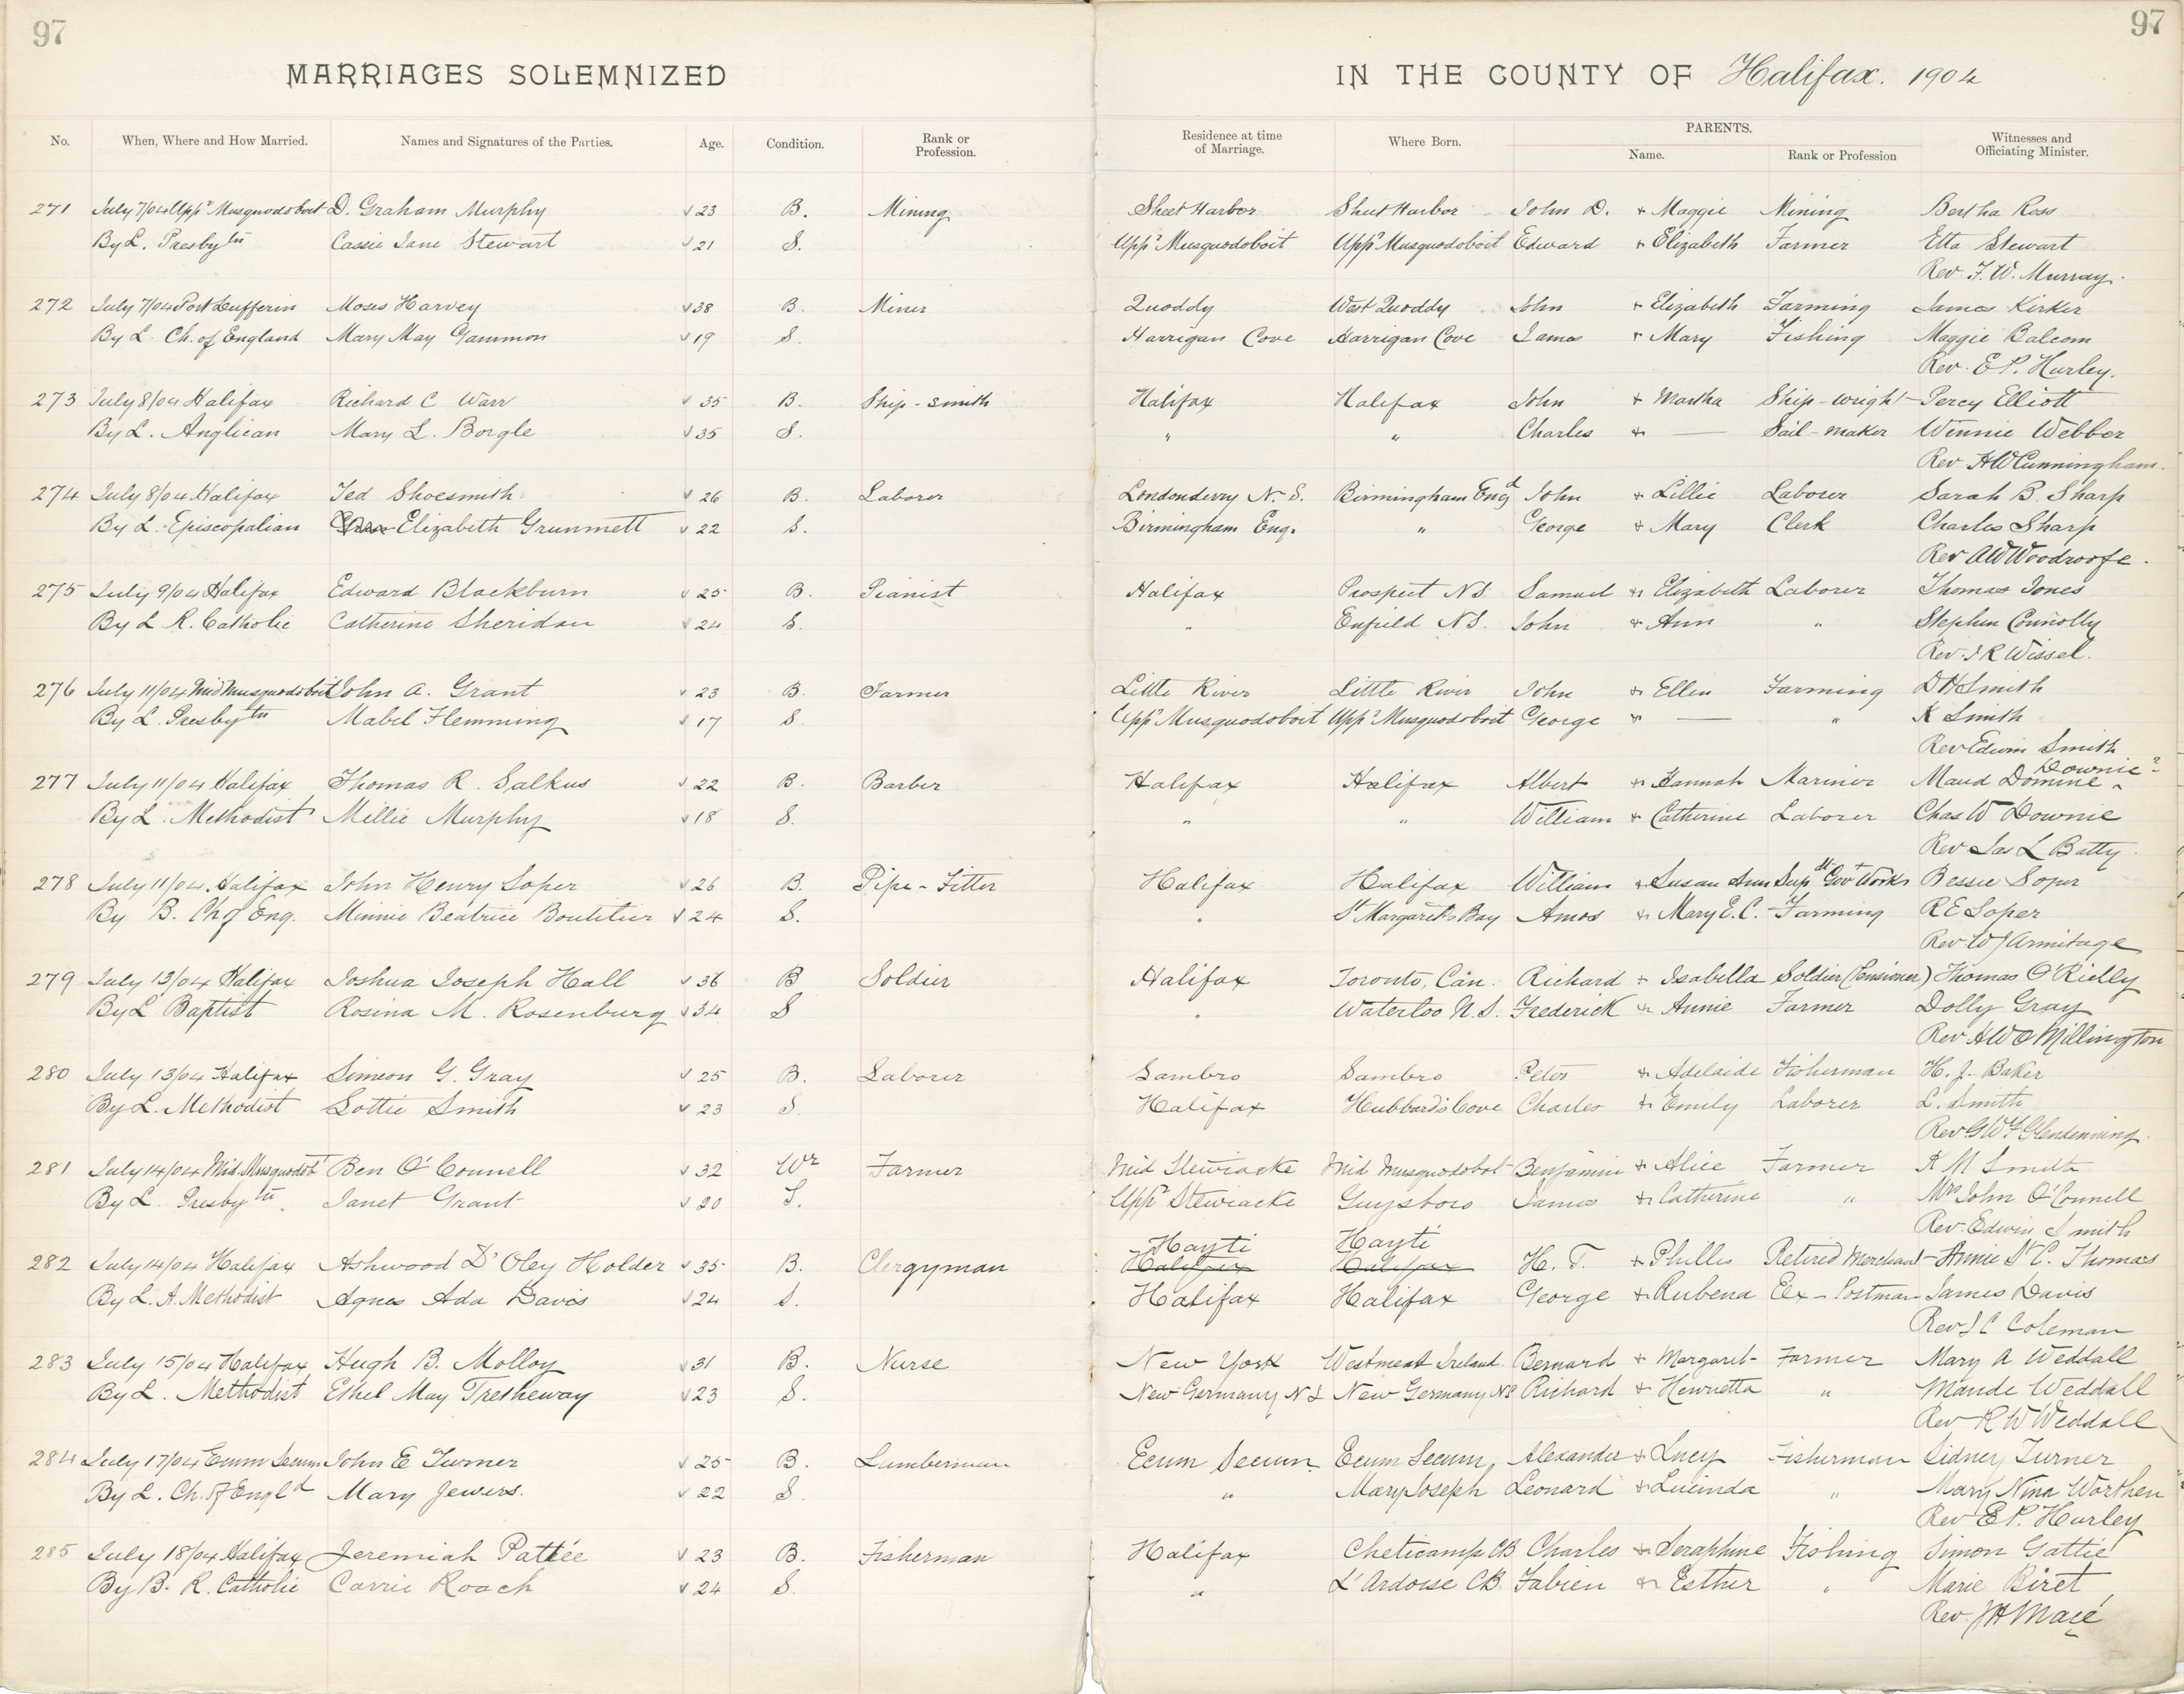 97
97
MARRIAGES SOLEMNIZED IN THE COUNTY OF Halifax. 1904
No. When, Where and How Married. Names and Signatures of the Parties. Age. Condition. Rank or Profession. Residence at time of Marriage. Where Born. PARENTS. Name. Rank or Profession Witnesses and Officiating Minister.
271 July 7/04 Uppr Musquodoboit D. Graham Murphy 23 B. Mining Sheet Harbor Sheet Harbor John D. + Maggie Mining Bertha Ross
By L. Presbytn Cassie Jane Stewart 21 S. Uppr Musquodoboit Uppr Musquodoboit Edward + Elizabeth Farmer Etta Stewart
Rev F. W. Murray.
272 July 7/04 Port Dufferin Moses Harvey 38 B. Miner Quoddy West Quoddy John + Elizabeth Farming James Kirker
By L. Ch. of England Mary May Gammon 19 S. Harrigan Cove Harrigan Cove James + Mary Fishing Maggie Balcom
Rev. E. P. Hurley.
273 July 8/04 Halifax Richard C Warr 35 B. Ship-smith Halifax Halifax John + Martha Ship-wright Percy Elliott
By L. Anglican Mary L. Borgle 35 S. " " Charles + — Sail-maker Winnie Webber
Rev H W Cunningham.
274 July 8/04 Halifax Ted Shoesmith 26 B. Laborer Londonderry N. S. Birmingham Engd John + Lillie Laborer Sarah B. Sharp
By L. Episcopalian Elizabeth Grunmett 22 S. Birmingham Eng. " George + Mary Clerk Charles Sharp
Rev A W Woodroofe.
275 July 9/04 Halifax Edward Blackburn 25 B. Pianist Halifax Prospect N S. Samuel + Elizabeth Laborer Thomas Jones
By L R. Catholic Catherine Sheridan 24 S. " Enfield N S. John + Ann " Stephen Connolly
Rev. J R Wissel.
276 July 11/04 Mid Musquodoboit John A. Grant 23 B. Farmer Little River Little River John + Ellen Farming D H Smith
By L. Presbytn Mabel Flemming 17 S. Uppr Musquodoboit Uppr Musquodoboit George " — " K Smith
Rev Edwin Smith
Downie?
277 July 11/04 Halifax Thomas R. Salkus 22 B. Barber Halifax Halifax Albert + Hannah Mariner Maud Domine
By L. Methodist Millie Murphy 18 S. " " William + Catherine Laborer Chas W Downie
Rev Jas L Batty.
278 July 11/04. Halifax John Henry Soper 26 B. Pipe-Fitter Halifax Halifax William + Susan Ann Supdt Govt Works Bessie Soper
By B. Ch of Eng. Minnie Beatrice Boutilier 24 S. " St Margaret's Bay Amos + Mary E. C. Farming R E Soper
Rev W J Armitage
279 July 13/04 Halifax Joshua Joseph Hall 36 B Soldier Halifax Toronto, Can. Richard + Isabella Soldier (Pensioner) Thomas O'Rielly
By L Baptist Rosina M. Rosenburg 34 S " Waterloo N. S. Frederick + Annie Farmer Dolly Gray
Rev H W O Millington
280 July 13/04 Halifax Simeon G. Gray 25 B. Laborer Sambro Sambro Peter + Adelaide Fisherman H. J. Baker
By L. Methodist Lottie Smith 23 S Halifax Hubbard's Cove Charles + Emily Laborer L. Smith
Rev G Wm Glendenning.
281 July 14/04 Mid. Musquodobt Ben O'Connell 32 Wr Farmer Mid Stewiacke Mid Musquodobot Benjamin + Alice Farmer K M Smith
By L. Presbytn. Janet Grant 20 S. Uppr Stewiacke Guysboro James + Catherine " Mrs John O'Connell
Rev. Edwin Smith
Hayti Hayti
282 July 14/04 Halifax Ashwood D'Oley Holder 35 B. Clergyman Halifax Halifax H. T. + Phillis Retired Merchant Annie St C. Thomas
By L. A. Methodist Agnes Ada Davis 24 S. Halifax Halifax George + Rubena Ex-Postman James Davis
Rev J C Coleman
283 July 15/04 Halifax Hugh B. Molloy 31 B. Nurse New York Westmeat Ireland. Bernard + Margaret Farmer Mary A Weddall
By L. Methodist Ethel May Tretheway 23 S. New Germany N S New Germany N S Richard + Henrietta " Maude Weddall
Rev R W Weddall
284 July 17/04 Ecum Secum John E Turner 25 B. Lumberman Ecum Secum Ecum Secum, Alexander + Lucy Fisherman Sidney Turner
By L. Ch. of Engld Mary Jewers. 22 S. " Mary Joseph Leonard + Lucinda " Mary Nina Worthen
Rev E P. Hurley
285 July 18/04 Halifax Jeremiah Pattée 23 B. Fisherman Halifax Cheticamp CB Charles + Seraphine Fishing Simon Gattie
By B. R. Catholic Carrie Roach 24 S. " L'Ardoise CB. Fabien + Esther " Marie Biret
Rev.